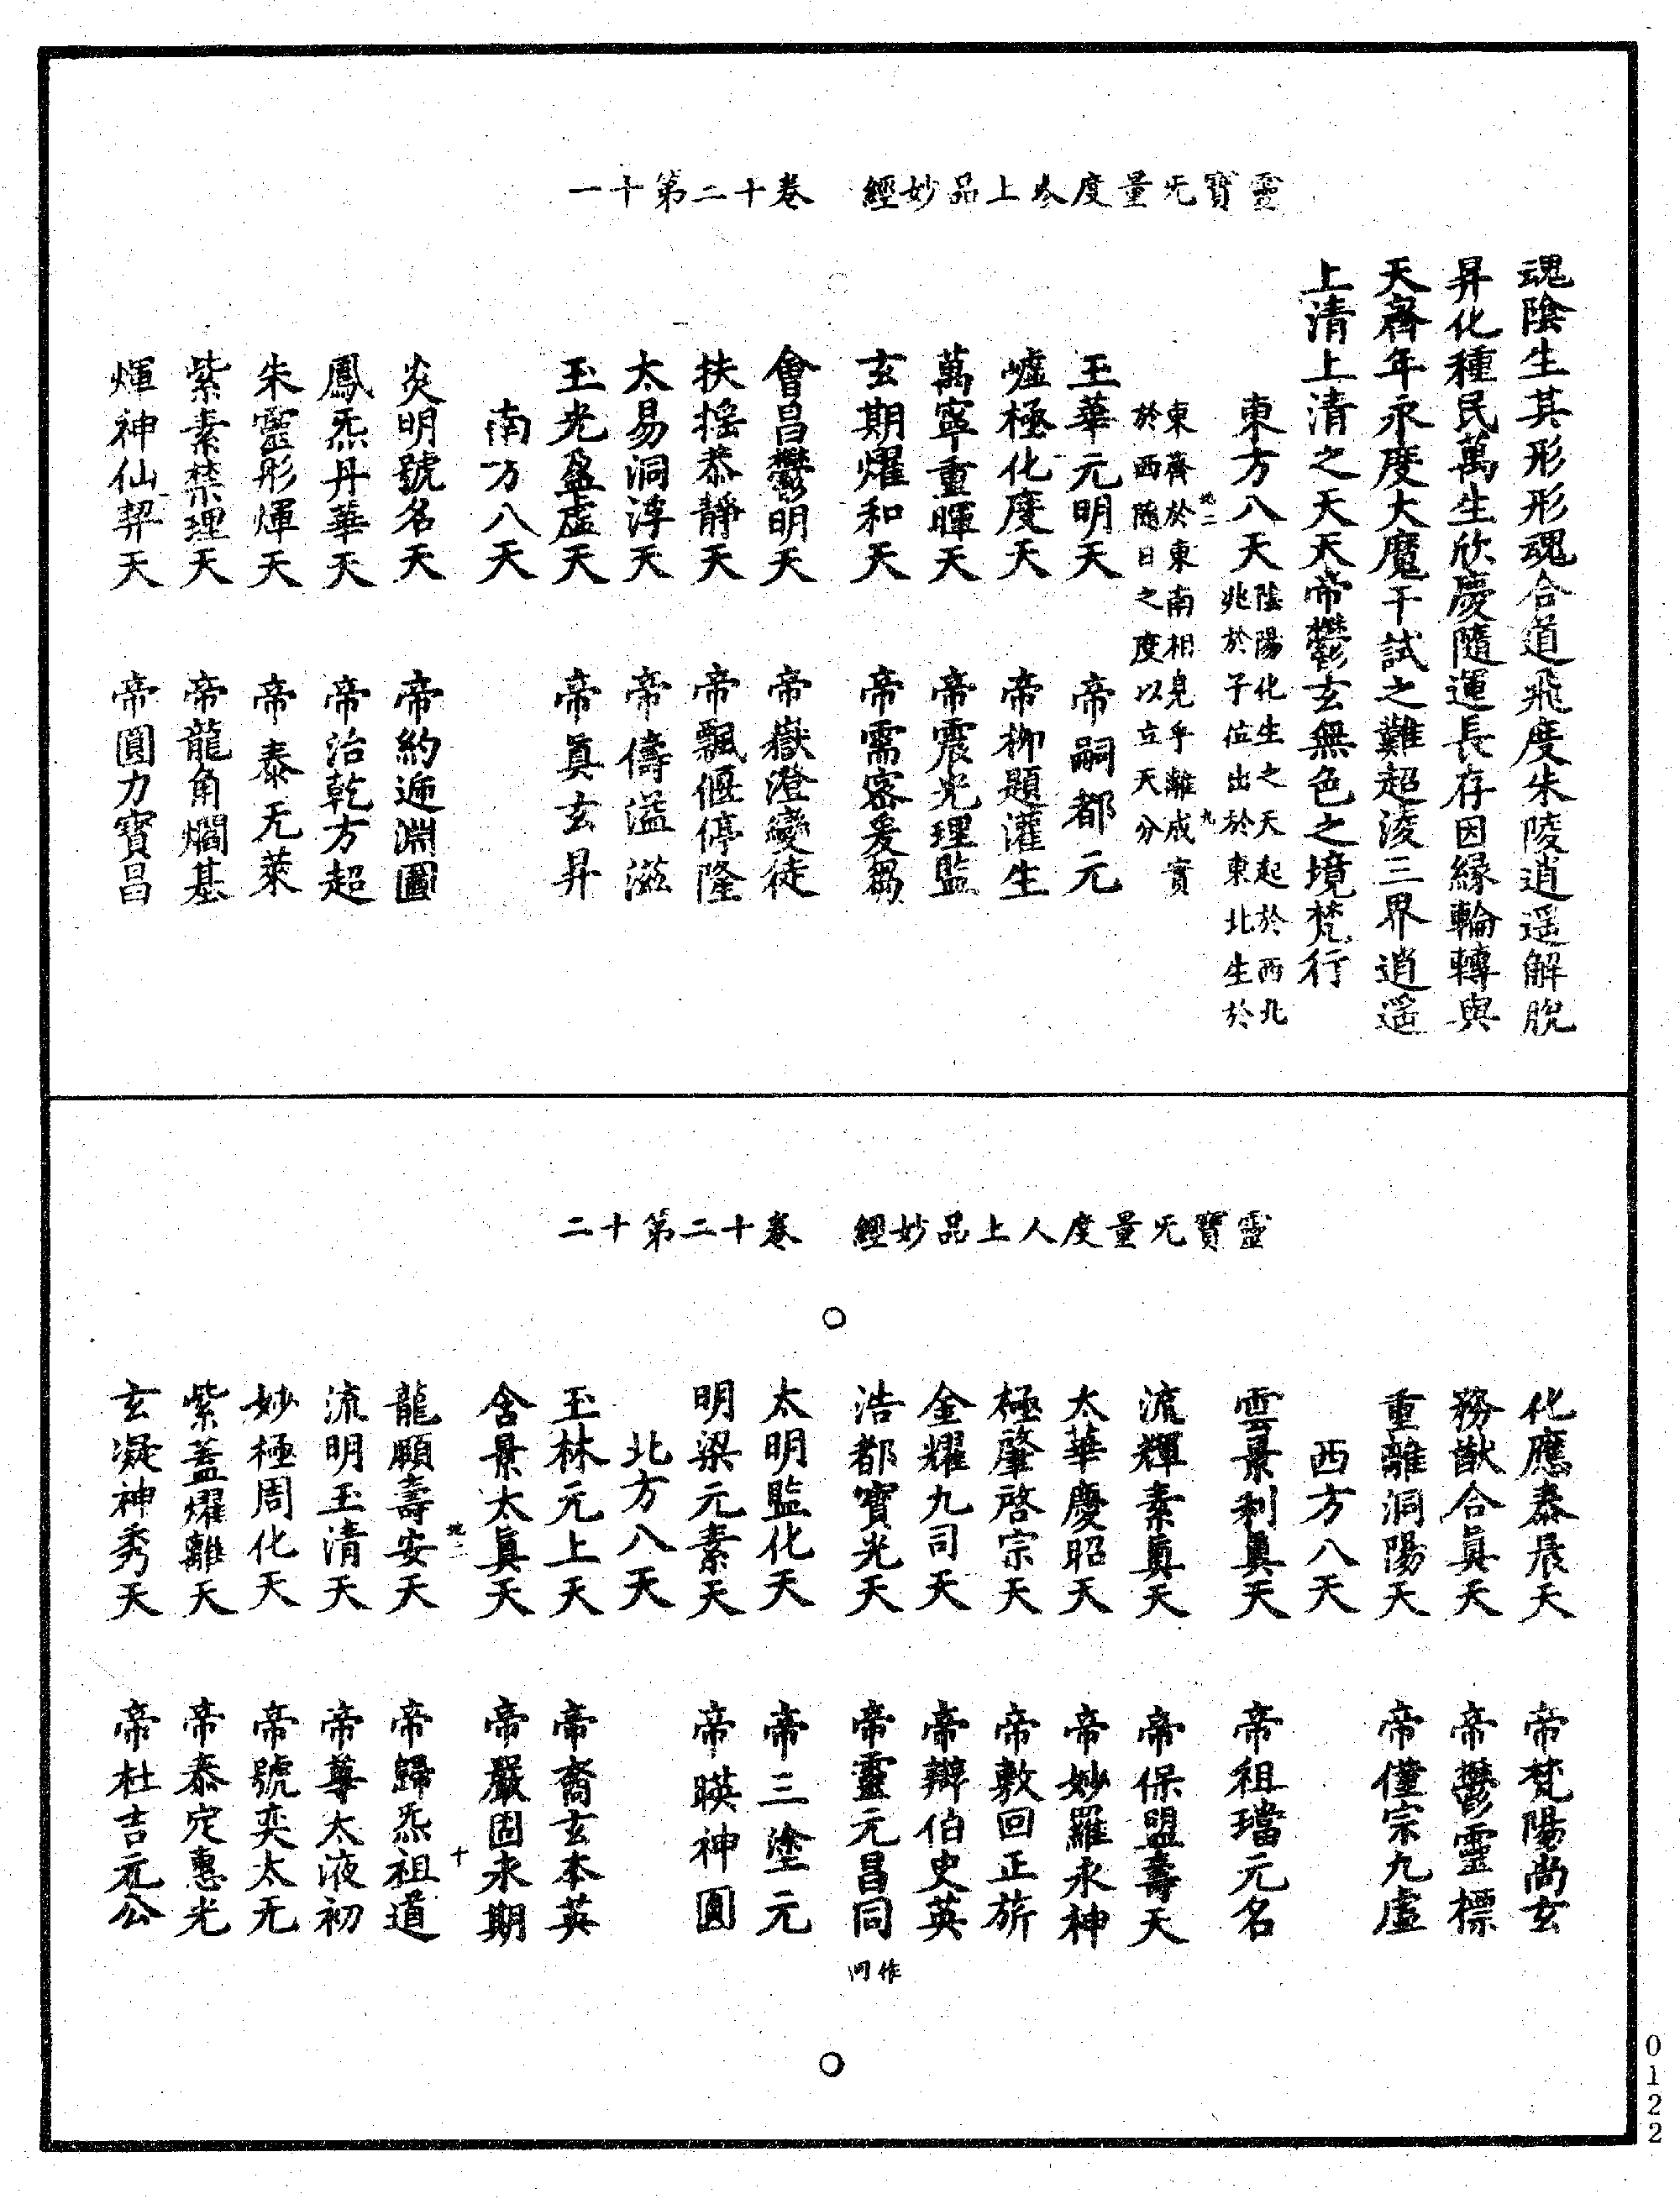 靈寶无量度人上品妙經　卷十二第十一
魂陰生其形形魂合道飛度朱陵逍遥解脫
昇化種民萬生欣慶隨運長存因緣輪轉與
天齊年永度大魔干試之難超淩三界逍遥
上清上清之天天帝鬱玄無色之境梵行
東方八天陰陽化生之天起於西北
兆於子位出於東北生於
地二　九
東齊於東南相見乎離成實
於西隨日之度以立天分
玉華元明天　帝嗣都元
嶟極化度天　帝柳題灌生
萬寧重暉天　帝震光理監
玄期燿和天　帝需容爰芻
會昌鬱明天　帝嶽澄變徒
扶搖恭靜天　帝飄偃停隆
太易洞淳天　帝儔溢滋
玉光盈虛天　帝眞玄昇
南方八天
炎明號名天　帝約逓淵圖
鳳炁丹華天　帝治乾方超
朱靈彤煇天　帝泰无萊
紫素禁理天　帝龍角爓基
煇神仙契天　帝圓力寶昌
靈寶无量度人上品妙經　卷十二第十二
化應泰晨天　帝梵陽尚玄
務猷合眞天　帝鬱靈標
重離洞陽天　帝僅宗九虛
西方八天
雲景利眞天　帝祖璫元名
流輝素眞天　帝保盟壽天
太華慶昭天　帝妙羅永神
極肇啓宗天　帝敷回正旂
金耀九司天　帝辯伯史英
浩都寶光天　帝靈元昌同
作冋
太明監化天　帝三塗元
明梁元素天　帝暎神圓
北方八天
玉林元上天　帝裔玄本英
含景太眞天　帝嚴固永期
地二　十
龍願壽安天　帝歸炁祖道
流明玉清天　帝尊太液初
妙極周化天　帝號奕太无
紫蓋燿離天　帝泰定惠光
玄凝神秀天　帝杜吉元公
0122